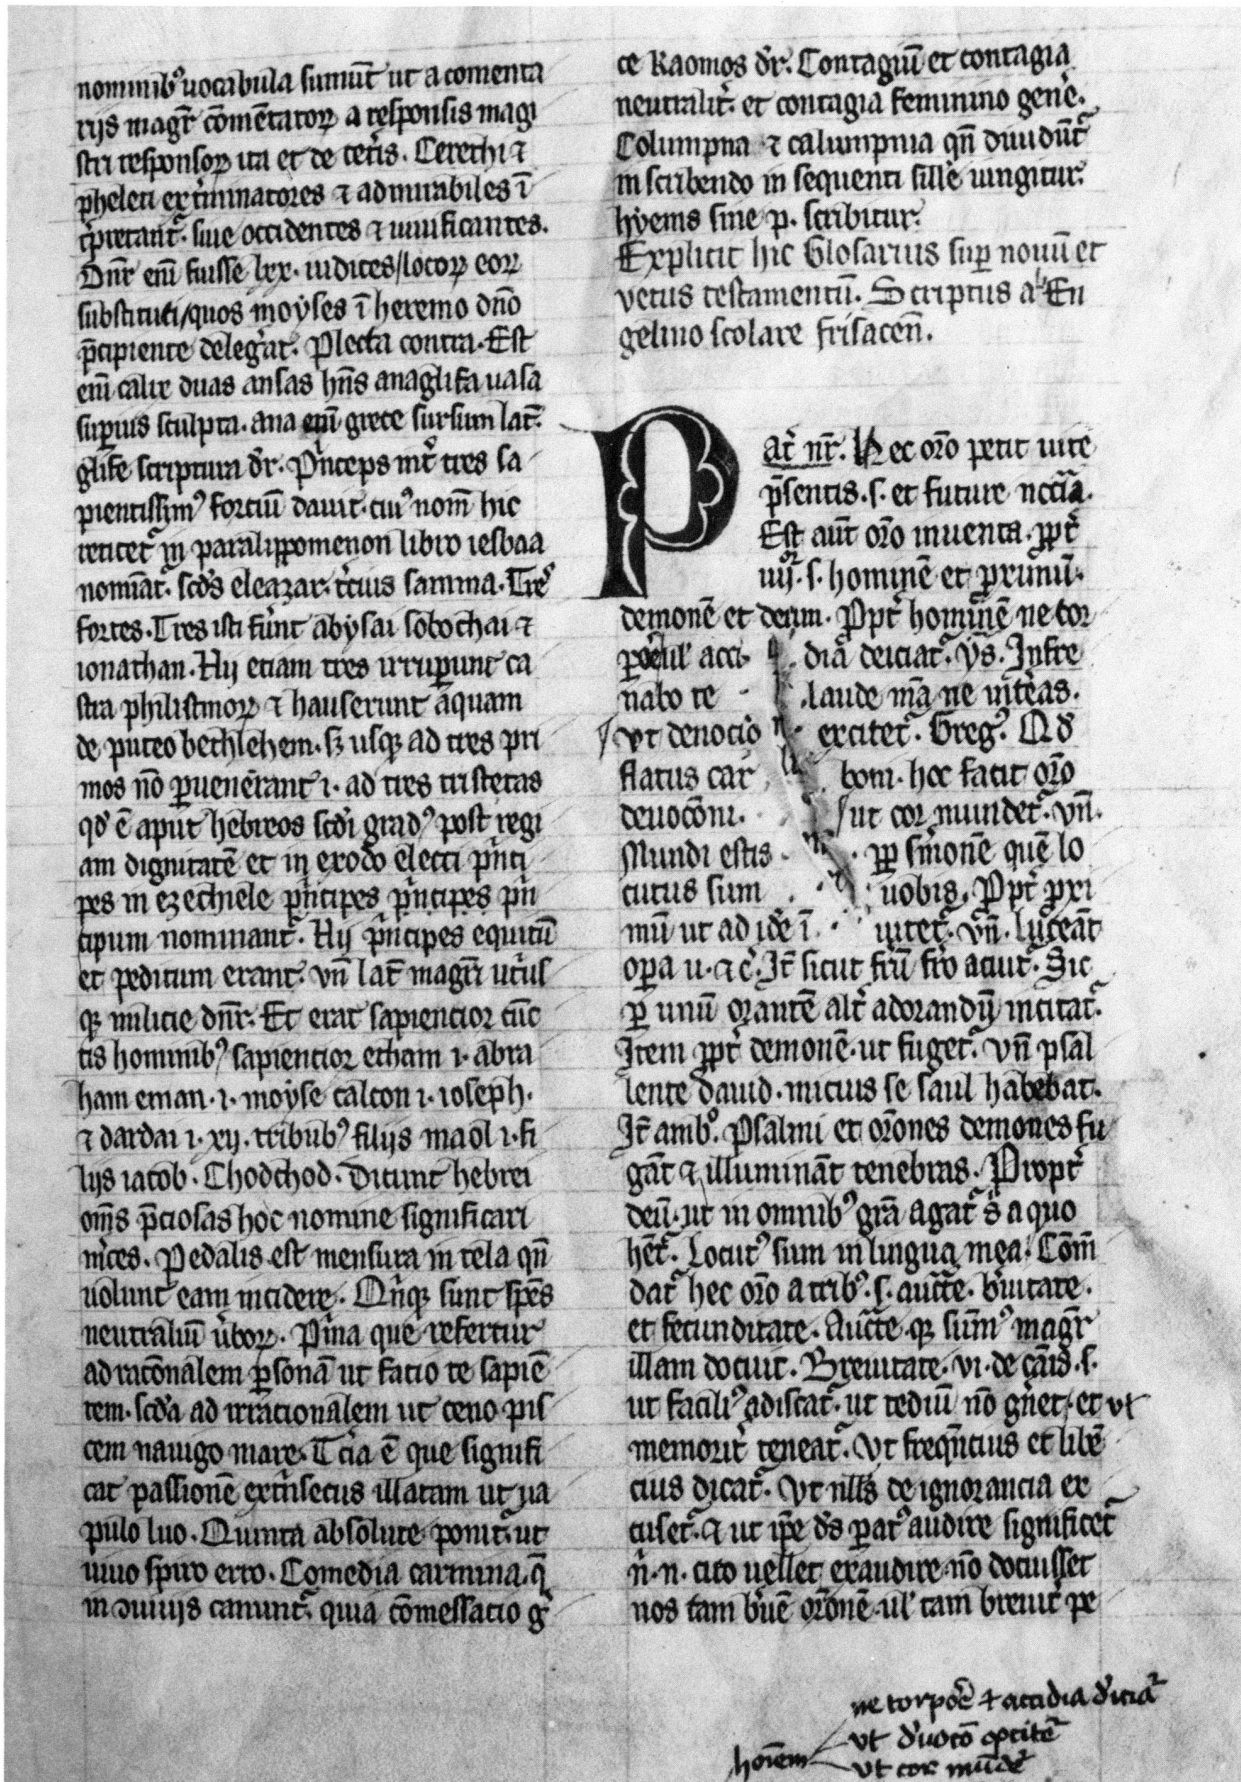 nominib⁹ uocabula sumūt ut a comenta
rijs magr̄ cōmētatoꝝ a responsis magi
stri responsoꝝ ita et de cet̄is. Cerethi ⁊
pheleti ext̄minatores ⁊ admirabiles ī
t̄pretant᷑. siue occidentes ⁊ uiuificantes.
Dn̄r em̄ fuisse lxx. iudices/locoꝝ eoꝝ
substituti/quos moyses ī heremo dn̄o
p̄cipiente deleg̓at. Plecta contra. Est
em̄ calix duas ansas hn̄s anaglifa uasa
suꝑius sculpta. ana em̄ grece sursum lat̄.
glife scriptura dr̄. Pn̄ceps int̓ tres sa
pientissim⁹ fortiū dauit. cui⁹ nom̄ hic
reticet᷑ in paralippomenon libro iesbaa
nomīat᷑. scd̓s eleazar. t̓cius samma. Tres
fortes. Tres isti fūnt abysai sobochai ⁊
ionathan. Hij etiam tres irruꝑunt ca
stra philistinoꝝ ⁊ hauserunt aquam
de puteo bethlehem. sꝫ usqꝫ ad tres pri
mos nō ꝑuenerant i. ad tres tristetas
qd̓ ē aput hebreos scd̓i grad⁹ post regi
am dignitatē et in exodo electi p̓nci
pes in ezechiele p̓ncipes p̓ncipes p̓n
cipum nominant᷑. Hij p̓ncipes equitū
et peditum erant. vn̄ lat̄ magr̄i ut̓us
qꝫ milicie dn̄r. Et erat sapiencior cūc
tis hominib⁹ sapiencior etham i. abra
ham eman. i. moyse calcon i. ioseph.
⁊ dardai i. xij. tribub⁹ filijs maol i. fi
lijs iacob. Chodchod. Dicunt hebrei
om̄s p̄ciosas hoc nomine significari
m̓ces. Pedalis est mensura in tela qn̄
uolunt eam incidere. Qn̓qꝫ sunt sp̄es
neutraliū ūboꝝ. P̓ma que refertur
ad racōnalem ꝑsonā ut facio te sapiē
tem. scd̓a ad irracionalem ut ceno pis
cem nauigo mare. T̓cia ē que signifi
cat passionē ext̓nsecus illatam ut ua
pulo luo. Quinta absolute ponit᷑. ut
uiuo spiro erro. Comedia carmina. q̄
in ɔuiuijs canunt᷑. quia cōmessacio g̓
ce kaomos dr̄. Contagiū et contagia
neutralit̓. et contagia feminino gene̓.
Columpna ⁊ calumpnia qn̄ diuidūt᷑
in scribendo in sequenti sille iungitur.
hyems sine p. scribitur.
Explicit hic Glosarius suꝑ nouū et
vetus testamentū. Scriptus ab En
gelino scolare frisacen̄.
Pat̓ nr̄. Hec orō petit uite
p̄sentis. s. et future nccīa.
Est aut̄ orō inuenta. ꝓpt̓
iiijor. s. hominē et proximū.
demonē et deum. Ppt̓ hominē ne tor
acci diā deiciat᷑. ys. Infre
nabo te laude mea ne intereas.
vt deuocio excitet᷑. Greg⁹. Qd̓
flatus car boni. hoc facit orō
deuocōni. ut cor mundet᷑. vn̄.
Mundi estis ꝓp s̓monē quē lo
cutus sum uobis. Ppt̓ proxi
mū ut ad idē ī uitet᷑. vn̄. luceāt
oꝑa u. ⁊ c̓. It̄ sicut frū fro acuit᷑. Sic
ꝑ unū orantē alt̓ ad orandū incitat᷑.
Item ꝓpt̓ demonē. ut fuget᷑. vn̄ psal
lente dauid. micius se saul habebat.
It̄ amb⁹. Psalmi et orōnes demones fu
gāt ⁊ illumināt tenebras. Propt̓
deū. ut in omnib⁹ grā agat᷑ s̄ a quo
hēt᷑. Locut⁹ sum in lingua mea. Cōm̄
dat᷑ hec orō a trib⁹. s. auct̄te. b̓uitate.
et fecunditate. Auct̄te. qꝫ sūm⁹ magr̄
illam docuit. Breuitate. vi. de cāis. s.
ut facili⁹ adiscat᷑. ut tediū nō gn̓et. et vt
memorit̓ teneat᷑. Vt freqn̄cius et libē
cius dicat᷑. Vt nlls de ignorancia ex
cuset᷑. ⁊ ut ip̄e ds̄ parat⁹ audire significet᷑
n̓. n. cito uellet exaudire. nō docuisset
nos tam b̓uē orōnē. ul̓ tam breuit̓ pe
ne torpore ⁊ accidia d̓iciat᷑
vt d̓uocō excitet᷑
hoīem
vt cor mūdet᷑